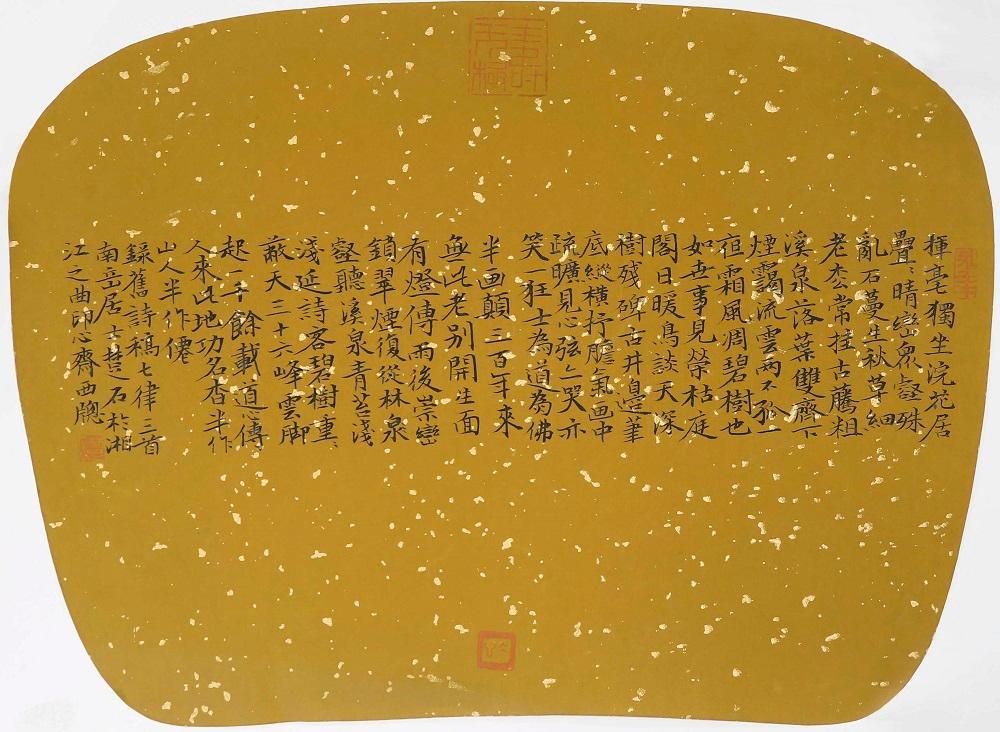 揮毫獨坐浣花居
疊〻晴巒眾壑殊
亂石蔓生秋草細
老枩常挂古藤粗
溪泉落葉雙齊下
煙靄流雲兩不孤一
夜霜風凋碧樹也
如世事見榮枯庭
閣日暖鳥談天深
樹殘碑古井邊筆
底縱橫抒膽氣画中
疏曠見心弦亦哭亦
笑一狂士為道為佛
半画顛三百年來
無此老別開生面
有燈傳雨後崇巒
鎖翠煙復從林泉
壑聽溪泉青苔淺〻
淺延詩客碧樹重〻
蔽天三十六峰雲腳
起一千餘載道心傳
人來此地功名者半作
山人半作僊
錄舊詩稿七律三首
南岳居士哲石於湘
江之曲印心齋西牕